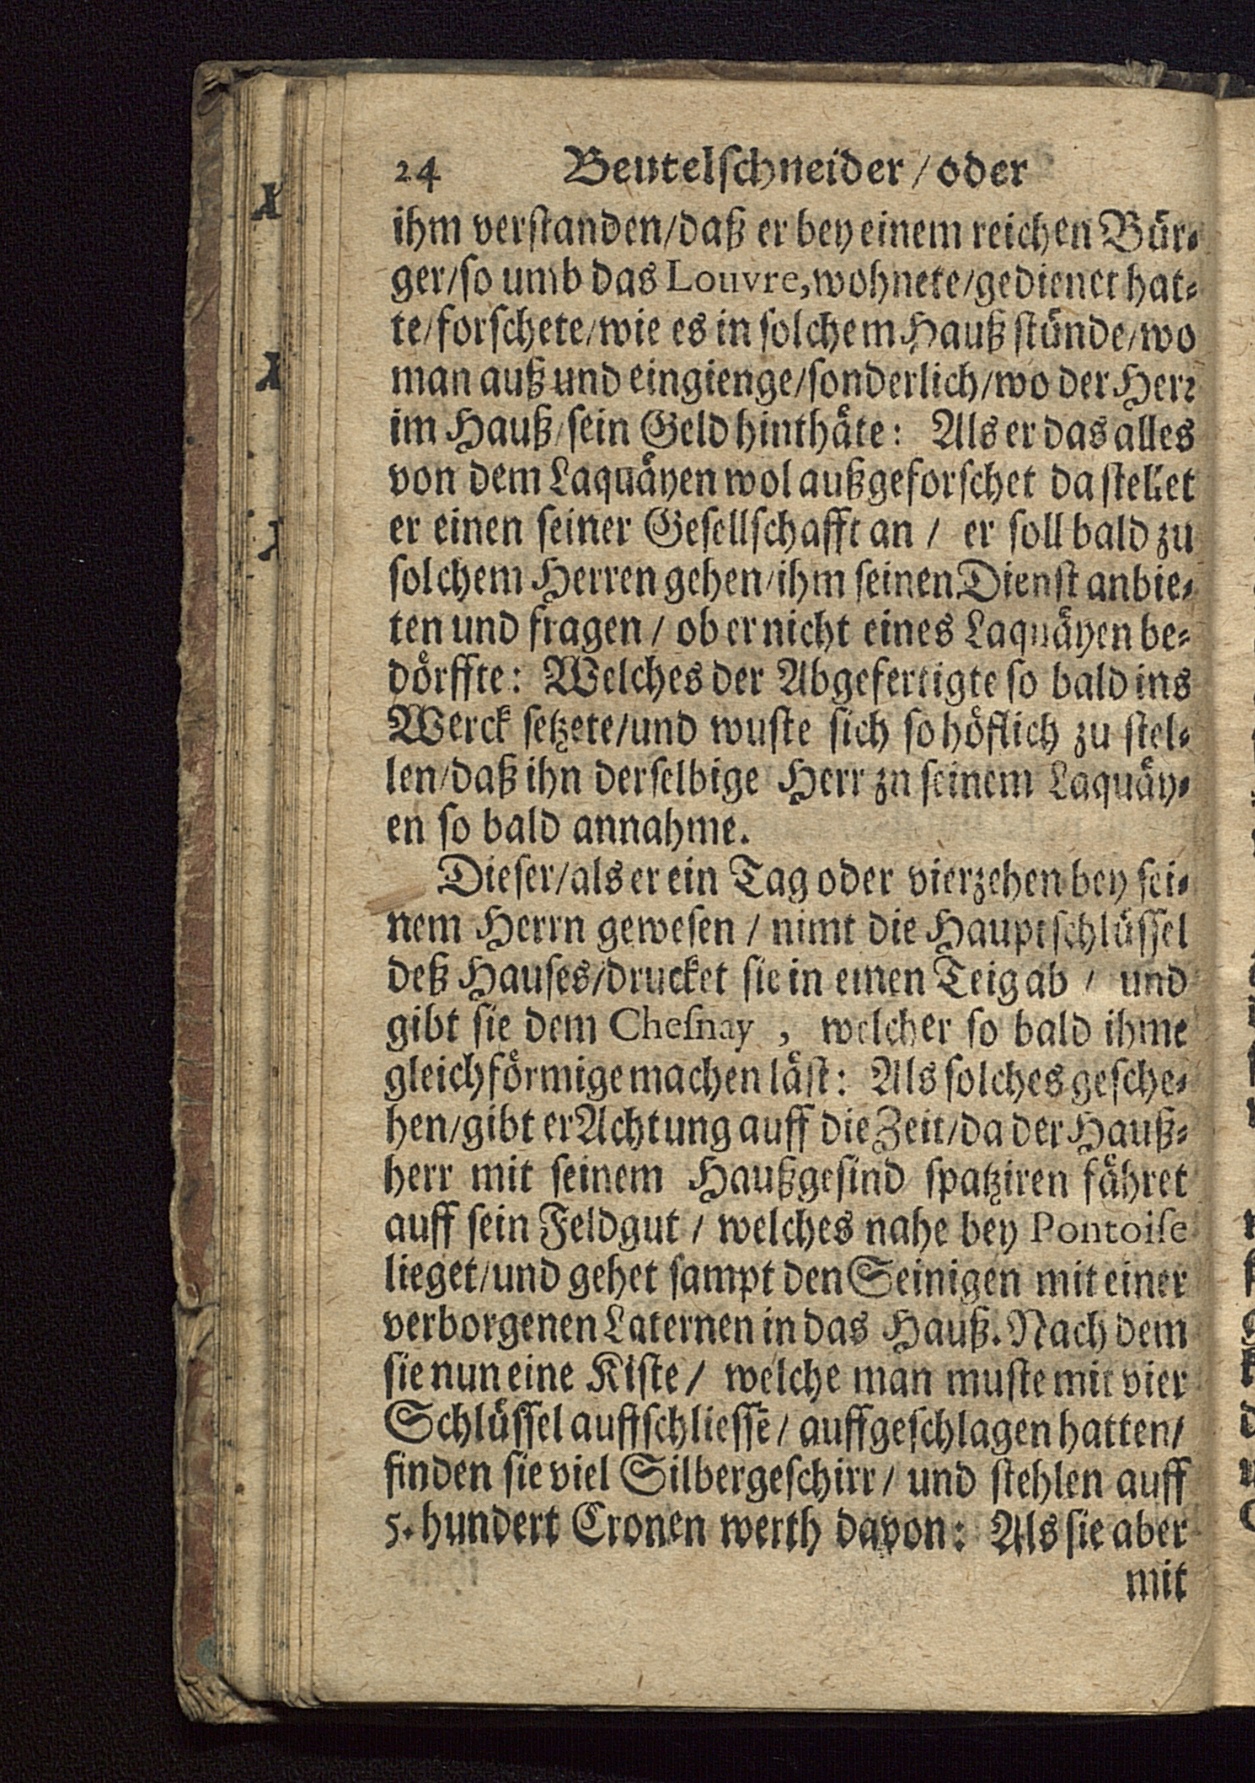 24 Beutelschneider / oder
ihm verstanden/daß er bey einem reichen Bür-
ger/so umb das Louvre, wohnete/gedienet hat-
te/forschete/wie es in solchem Hauß stünde/wo
man auß und eingienge/sonderlich/wo der Herr
im Hauß/sein Geld hinthäte: Als er das alles
von dem Laquäyen wol außgeforschet da stellet
er einen seiner Gesellschafft an / er soll bald zu
solchem Herren gehen/ihm seinen Dienst anbie-
ten und fragen / ob er nicht eines Laquäyen be-
dörffte: Welches der Abgefertigte so bald ins
Werck setzete/und wuste sich so höflich zu stel-
len/daß ihn derselbige Herr zu seinem Laquäy-
en so bald annahme.
Dieser/als er ein Tag oder vierzehen bey sei-
nem Herrn gewesen / nimt die Hauptschlüssel
deß Hauses/drucket sie in einen Teig ab / und
gibt sie dem Chesnay , welcher so bald ihme
gleichförmige machen läst: Als solches gesche-
hen/gibt er Achtung auff die Zeit/da der Hauß-
herr mit seinem Haußgesind spatziren fähret
auff sein Feldgut / welches nahe bey Pontoise
lieget/und gehet sampt den Seinigen mit einer
verborgenen Laternen in das Hauß. Nach dem
sie nun eine Kiste / welche man muste mit vier
Schlüssel auffschliessē / auffgeschlagen hatten/
finden sie viel Silbergeschirr / und stehlen auff
5. hundert Cronen werth davon: Als sie aber
mit